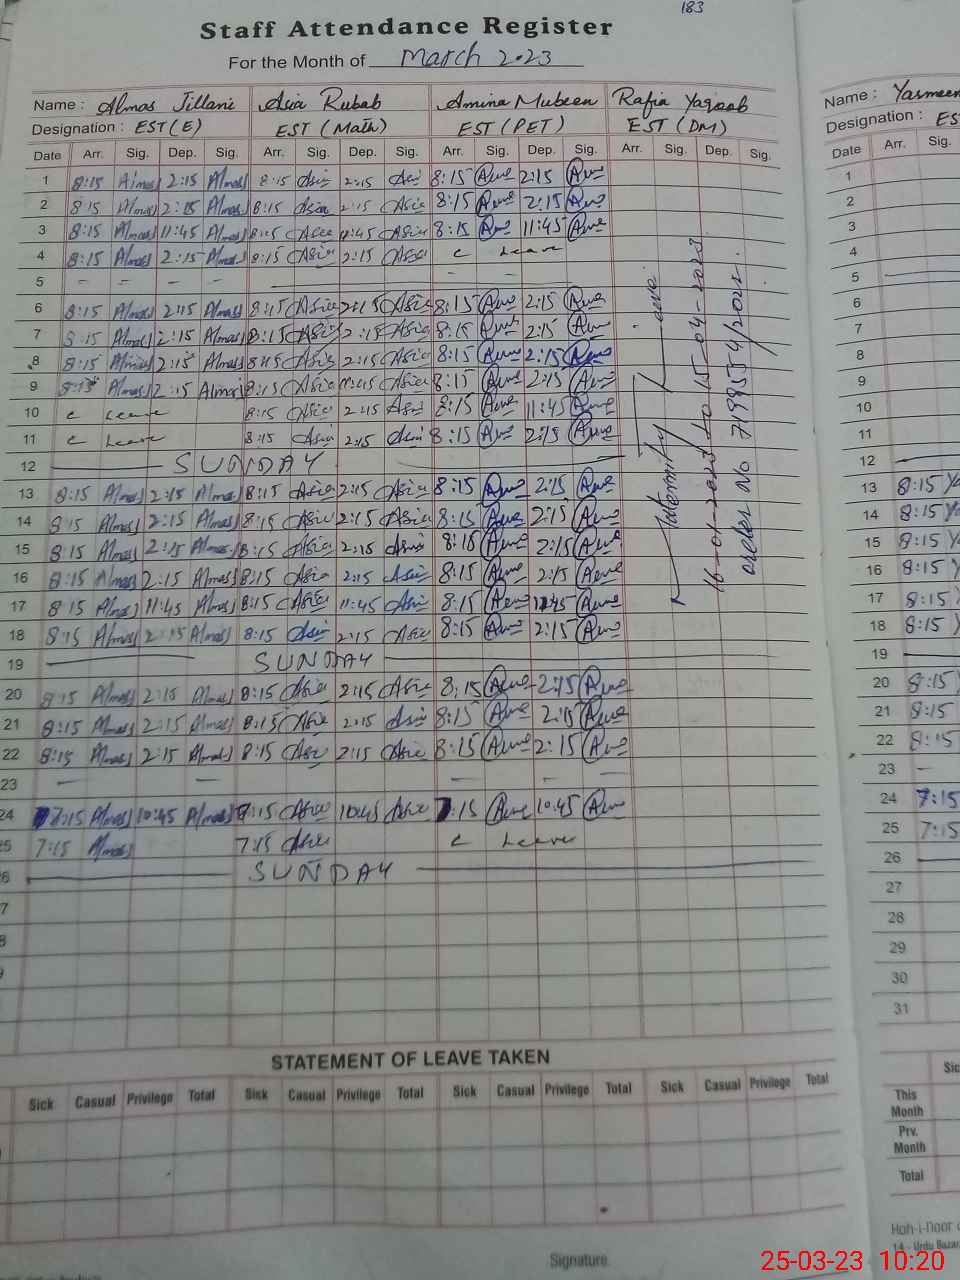 183
Staff Attendance Register
For the Month of March 2023
Name : Almas Jillani Asia Rubab Amina Mubeen Rafia Yaqoob Name : Yasmeen
Designation : EST(E) EST (Math) EST (PET) EST (DM) Designation : ES
Date Arr. Sig. Dep. Sig. Arr. Sig. Dep. Sig. Arr. Sig. Dep. Sig. Arr. Sig. Dep. Sig. Date Arr. Sig.
1 8:15 Almas 2:15 Almas 8:15 Asia 2:15 Asia 8:15 2:15 1
2 8:15 Almas 2:15 Almas 8:15 Asia 2:15 Asia 8:15 2:15 2
3 8:15 Almas 11:45 Almas 8:15 Asia 11:45 Asia 8:15 11:45 3
4 8:15 Almas 2:15 Almas 8:15 Asia 2:15 Asia c Leave 4
5 - - - - - - 5
6 8:15 Almas 2:15 Almas 8:15 Asia 2:15 Asia 8:15 2:15 6
7 8:15 Almas 2:15 Almas 8:15 Asia 2:15 Asia 8:15 2:15 7
8 8:15 Almas 2:15 Almas 8:15 Asia 2:15 Asia 8:15 2:15 8
9 8:15 Almas 2:15 Almas 8:15 Asia Asia 8:15 2:15 9
10 c Leave 8:15 Asia 2:15 Asia 8:15 11:45 10
11 c Leave 8:15 Asia 2:15 Asia 8:15 2:15 11
12 SUNDAY 12
13 8:15 Almas 2:15 Almas 8:15 Asia 2:15 Asia 8:15 2:15 13 8:15
14 8:15 Almas 2:15 Almas 8:15 Asia 2:15 Asia 8:15 2:15 14 8:15
15 8:15 Almas 2:15 Almas 8:15 Asia 2:15 Asia 8:15 2:15 15 8:15
16 8:15 Almas 2:15 Almas 8:15 Asia 2:15 Asia 8:15 2:15 16 8:15
17 8:15 Almas 11:45 Almas 8:15 Asia 11:45 Asia 8:15 11:45 17 8:15
18 8:15 Almas 2:15 Almas 8:15 Asia 2:15 Asia 8:15 2:15 18 8:15
19 SUNDAY 19
20 8:15 Almas 2:15 Almas 8:15 Asia 2:15 Asia 8:15 2:15 20 8:15
21 8:15 Almas 2:15 Almas 8:15 Asia 2:15 Asia 8:15 2:15 21 8:15
22 8:15 Almas 2:15 Almas 8:15 Asia 2:15 Asia 8:15 2:15 22 8:15
23 - - - - - 23 -
24 7:15 Almas 10:45 Almas 7:15 Asia 10:45 Asia 7:15 10:45 24 7:15
5 7:15 Almas 7:15 Asia c Leave 25 7:15
6 SUNDAY 26
7 27
8 28
9 29
30
31
Maternity Leave
16-01-2023 to 15-04-2023
order No
STATEMENT OF LEAVE TAKEN
Sick Casual Privilege Total Sick Casual Privilege Total Sick Casual Privilege Total Sick Casual Privilege Total Sic
This Month
Prv. Month
Total
Signature
Koh-i-Noor
14 - Urdu Bazar
25-03-23 10:20